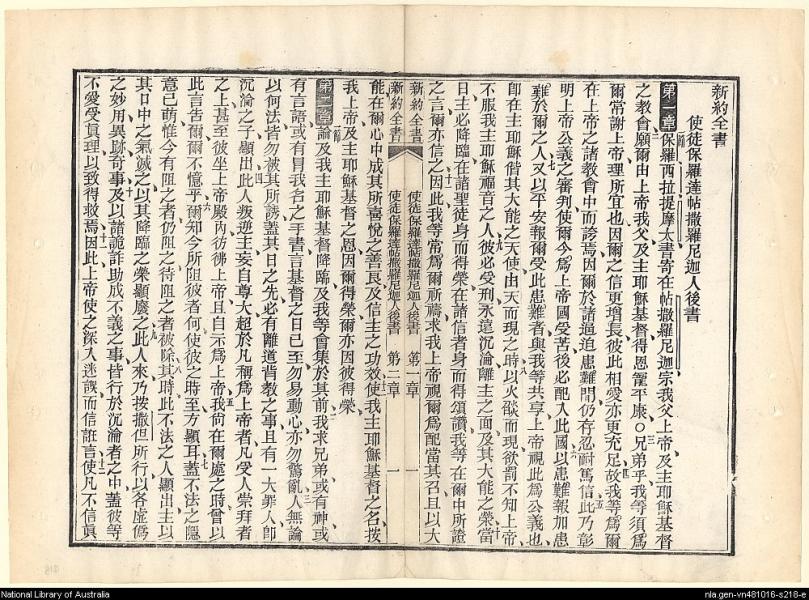 新約全書
使徒保羅達帖撒羅尼迦人後書
第一章 保羅西拉提摩太書寄在帖撒羅尼迦宗我父上帝及主耶穌基督
之教會願爾由上帝我父及主耶穌基督得恩寵平康〇兄弟乎我等須爲
爾常謝上帝理所宜也因爾之信更增長彼此相愛亦更充足故我等爲爾
在上帝之諸教會中而誇焉因爾於諸逼迫患難間仍存忍耐篤信此乃彰
明上帝公義之審判使爾今爲上帝國受苦後必配入此國以患難報加患
難於爾之人又以平安報爾受此患難者與我等共享上帝視此爲公義也
卽在主耶穌偕其大能之天使由天而現之時以火燄而現欲罰不知上帝
不服我主耶穌福音之人彼必受刑永遠沉淪離主之面及其大能之榮當
日主必降臨在諸聖徒身而得榮在諸信者身而得頌讚我等在爾中所證
之言爾亦信之因此我等常爲爾祈禱求我上帝視爾爲配當其召且以大
能在爾心中成其所喜悅之善良及信主之功效使我主耶穌基督之名按
我上帝及主耶穌基督之恩因爾得榮爾亦因彼得榮
新約全書 使徒保羅達帖撒羅尼迦人後書 第一章 一
新約全書 使徒保羅達帖撒羅尼迦人後書 第二章 一
第二章 論及我主耶穌基督降臨及我等會集於其前我求兄弟或有神或
有言語或有冒我名之手書言基督之日已至勿易動心亦勿驚亂人無論
以何法皆勿被其所誘蓋其日之先必有離道背教之事且有一大罪人卽
沉淪之子顯出此人叛逆主妄自尊大超於凡稱爲上帝者凡受人崇拜者
之上甚至彼坐上帝殿內彷彿上帝且自示爲上帝我尙在爾處之時曾以
此言告爾爾不憶乎爾知今所阻彼者何使彼之時至方顯耳蓋不法之隱
意已萌惟今有阻之者仍阻之待阻之者被除其時此不法之人顯出主以
其口中之氣滅之以其降臨之榮顯廢之此人來乃按撒但所行以各虛僞
之妙用異跡奇事及以諸詭詐助成不義之事皆行於沉淪者之中蓋彼等
不愛受眞理以致得救焉因此上帝使之深入迷誤而信誑言使凡不信眞
National Library of Australia
nla.gen-vn481016-s218-e